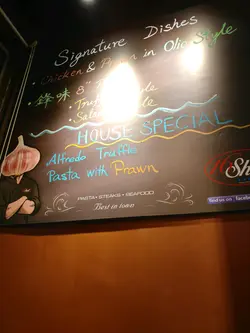 Signature Dishes
• Chicken & Prawn in Olio Style
• 鋒味 8"
• Tru Style
• Sal Style
HOUSE SPECIAL
Alfredo Truffle
Pasta with Prawn
PASTA • STEAKS • SEAFOOD
Best in town
Sh
find us on : faceb